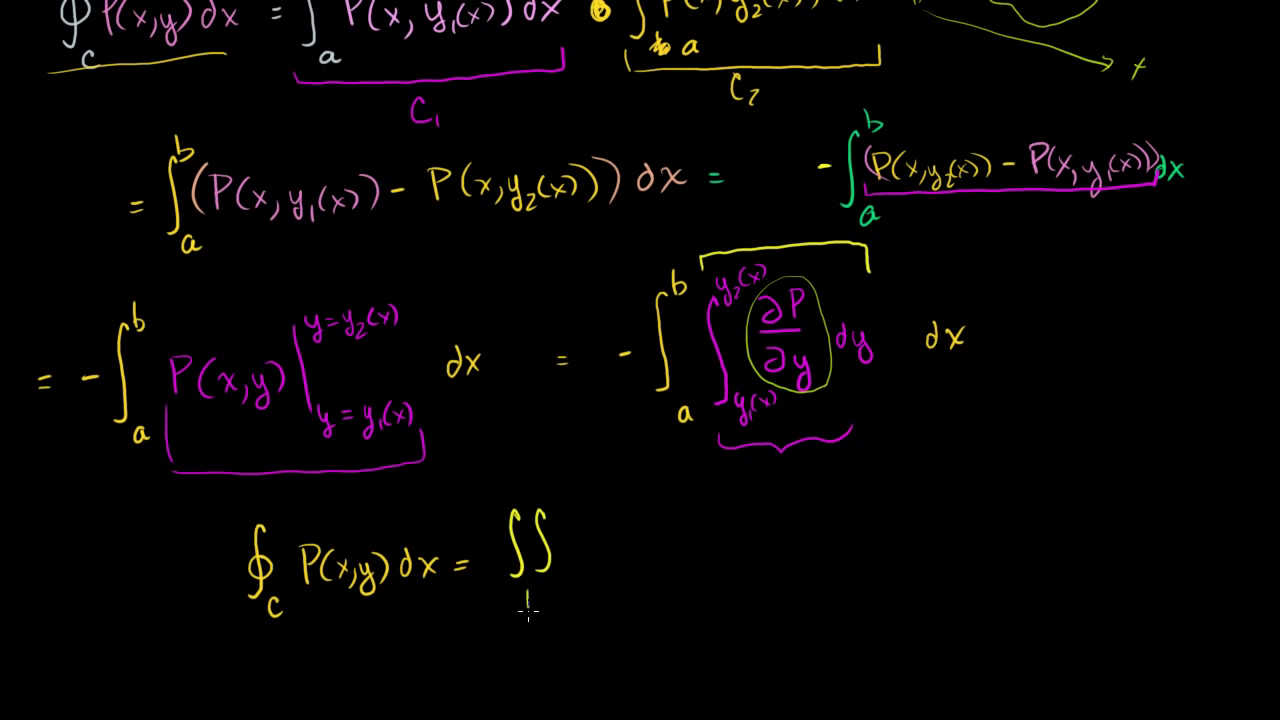 ∮_C P(x,y) dx = ∫_a P(x, y₁(x)) dx ∫_a P(x, y₂(x)) dx
C₁ C₂ x
= ∫_a^b (P(x, y₁(x)) - P(x, y₂(x))) dx = - ∫_a^b (P(x, y₂(x)) - P(x, y₁(x))) dx
= - ∫_a^b P(x,y) |_{y = y₁(x)}^{y = y₂(x)} dx = - ∫_a^b ∫_{y₁(x)}^{y₂(x)} ∂P/∂y dy dx
∮_C P(x,y) dx = ∬